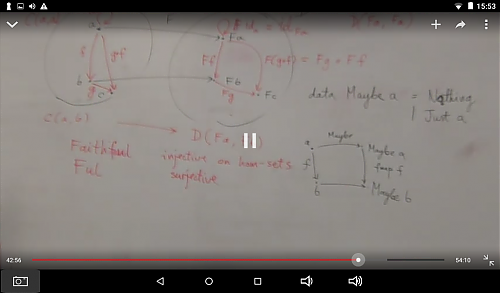 15:53
F
a
f
g∘f
b
g
c
Fa
Ff
F(g∘f) = Fg ∘ Ff
Fb
Fg
Fc
data Maybe a = Nothing
| Just a
C(a, b)
D(Fa,
Faithful injective on hom-sets
Ful surjective
Maybe
a
Maybe a
f
fmap f
b
Maybe b
42:56
54:10